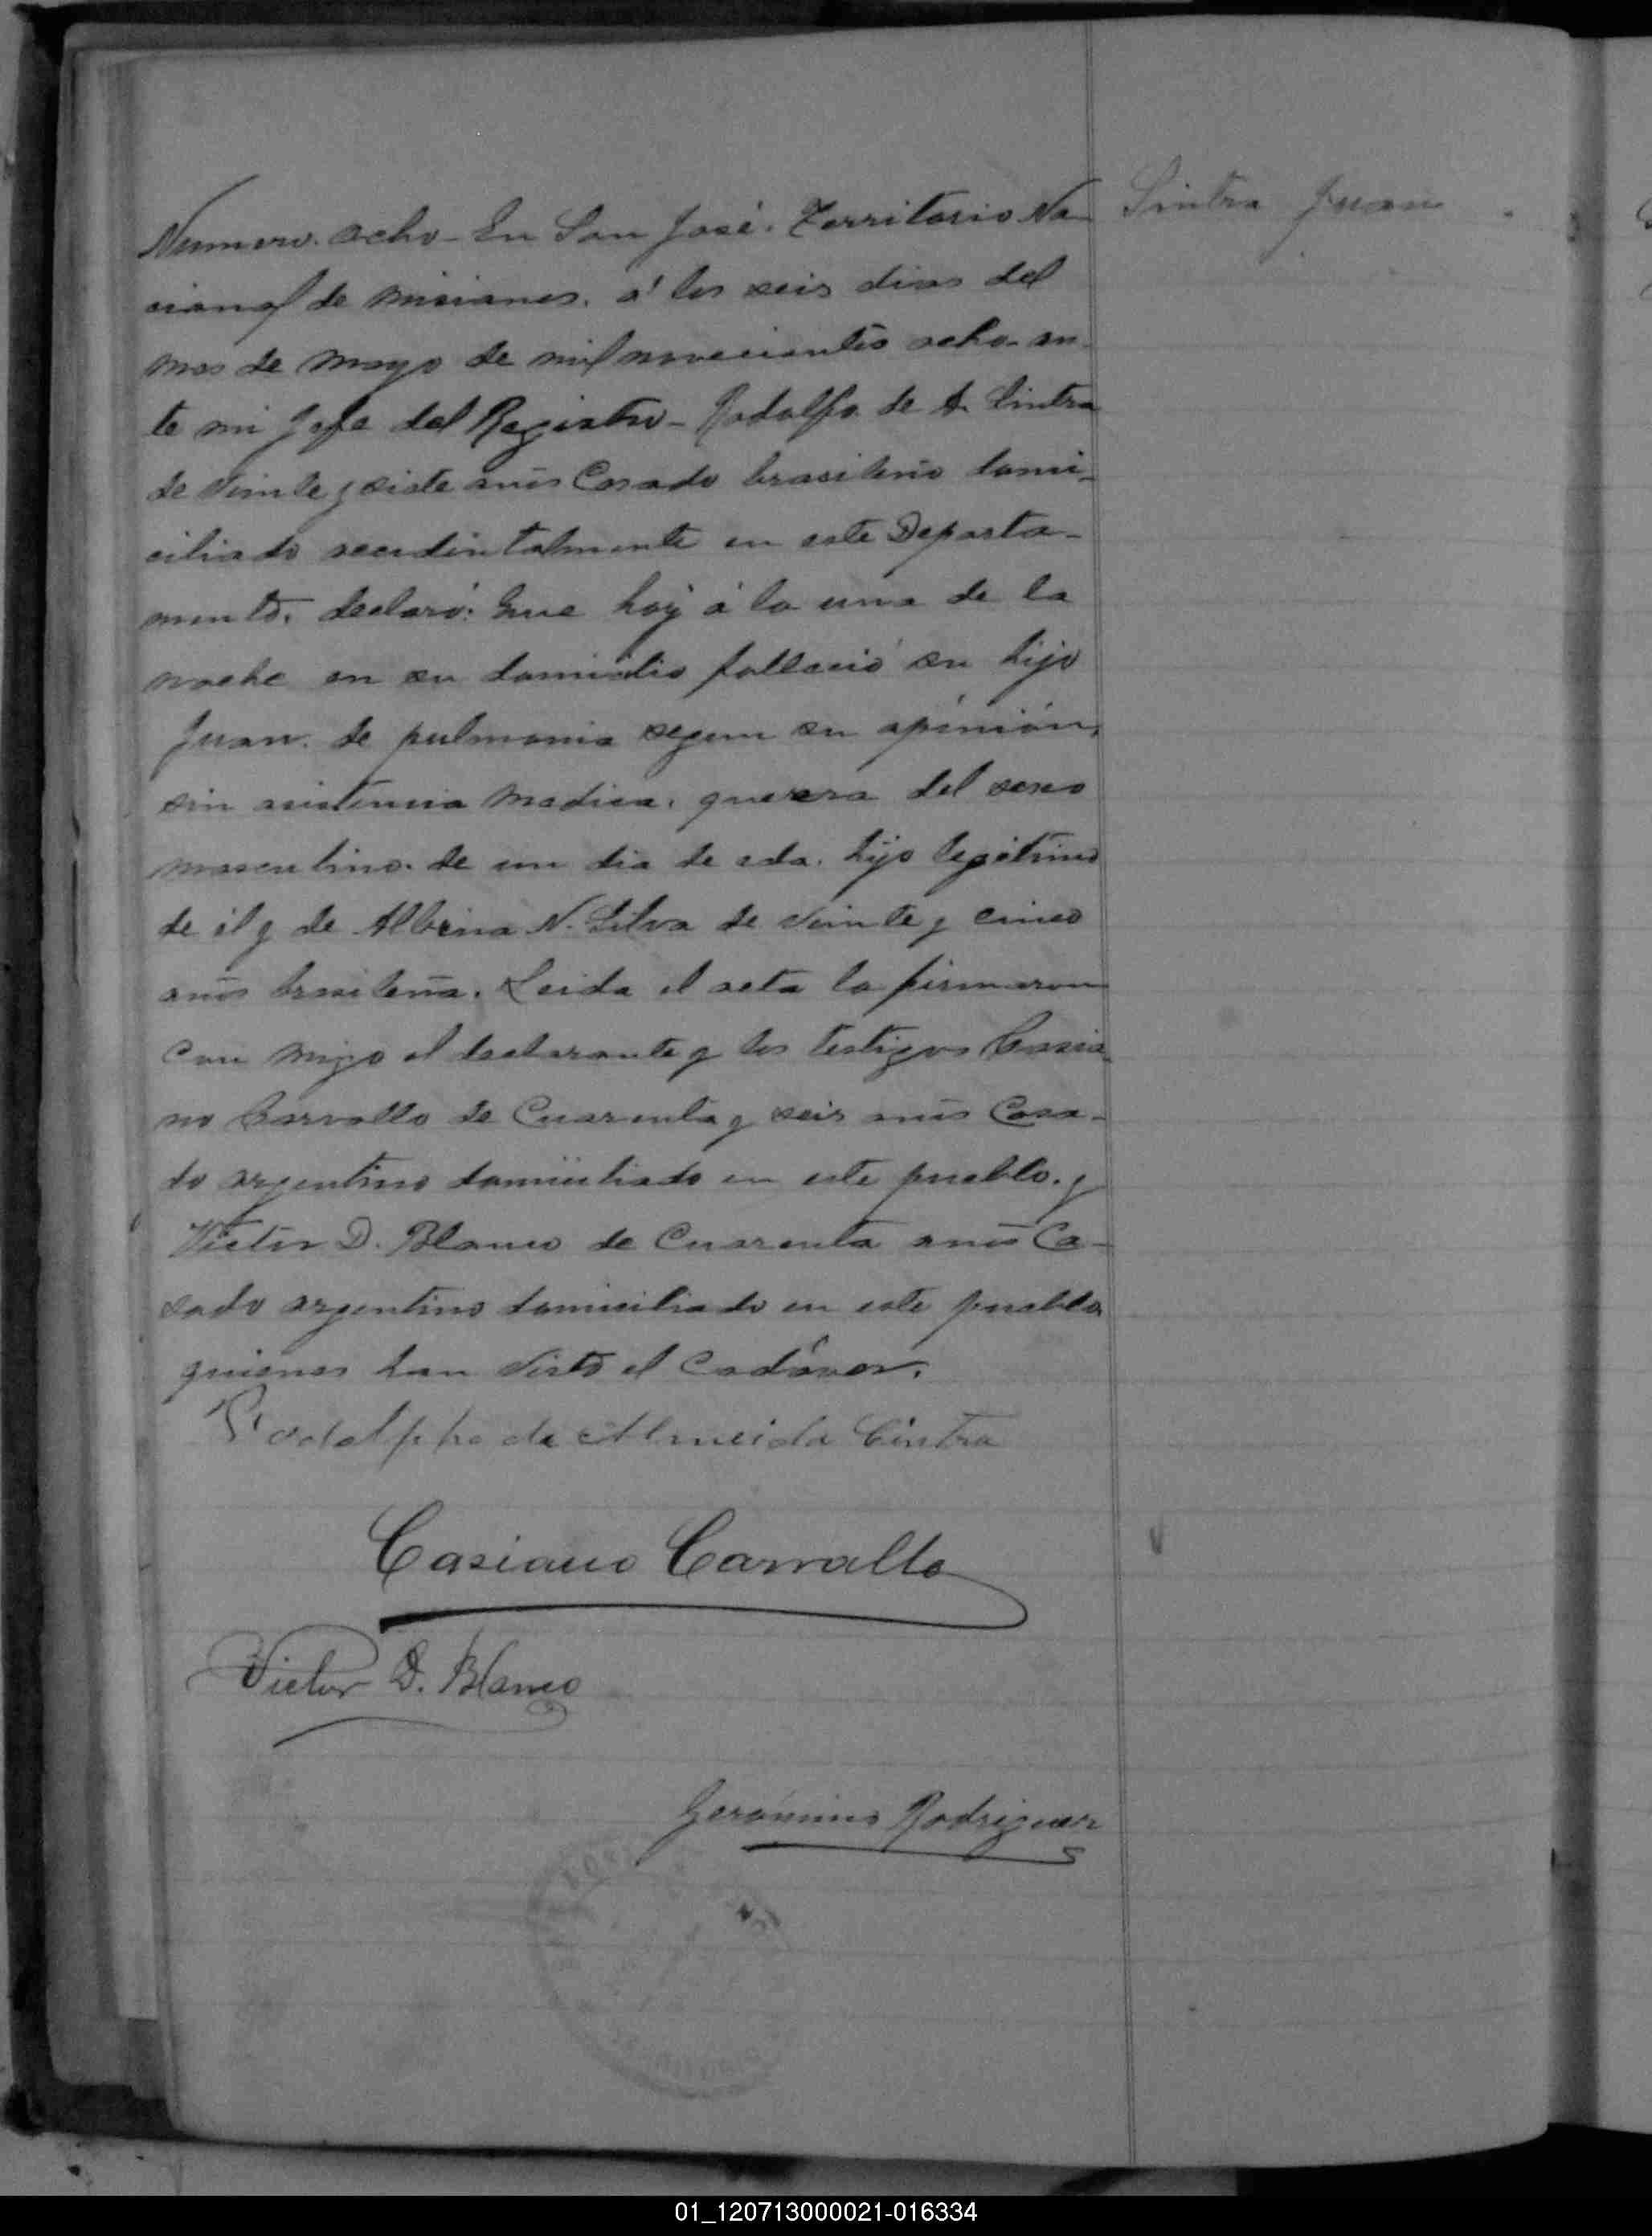 Numero. ocho - En San José. Territorio Na
Sintra Juan
cional de misiones. á los seis dias del
mes de mayo de mil novecientos ocho. an
te mi Jefe del Registro - Rodolfo de A. Sintra
de veinte y siete anõs Casado brasilero domi-
ciliado accidintalmente en este Departa-
mento. declaró: que hoy á la una de la
noche en su domicilio falleció su hijo
Juan. de pulmonia segun su opinión,
sin asistencia medica. que era del sexo
masculino. de un dia de eda. hijo legitimo
de él y de Albina N. Silva de veinte y cinco
anõs brasilera. Leida el acta la firmaron
con migo el declarante y los testigos Casia
no Carvallo de Cuarenta y seis anõs Casa-
do argentino domiciliado en este pueblo. y
Victor D. Blanco de Cuarenta anõs Ca-
sado argentino domiciliado en este pueblo
quienes han visto el Cadáver.
Rodolpho de Almeida Cintra
Casiano Carvallo
Victor D. Blanco
Gerónimo Rodriguez
01_120713000021-016334